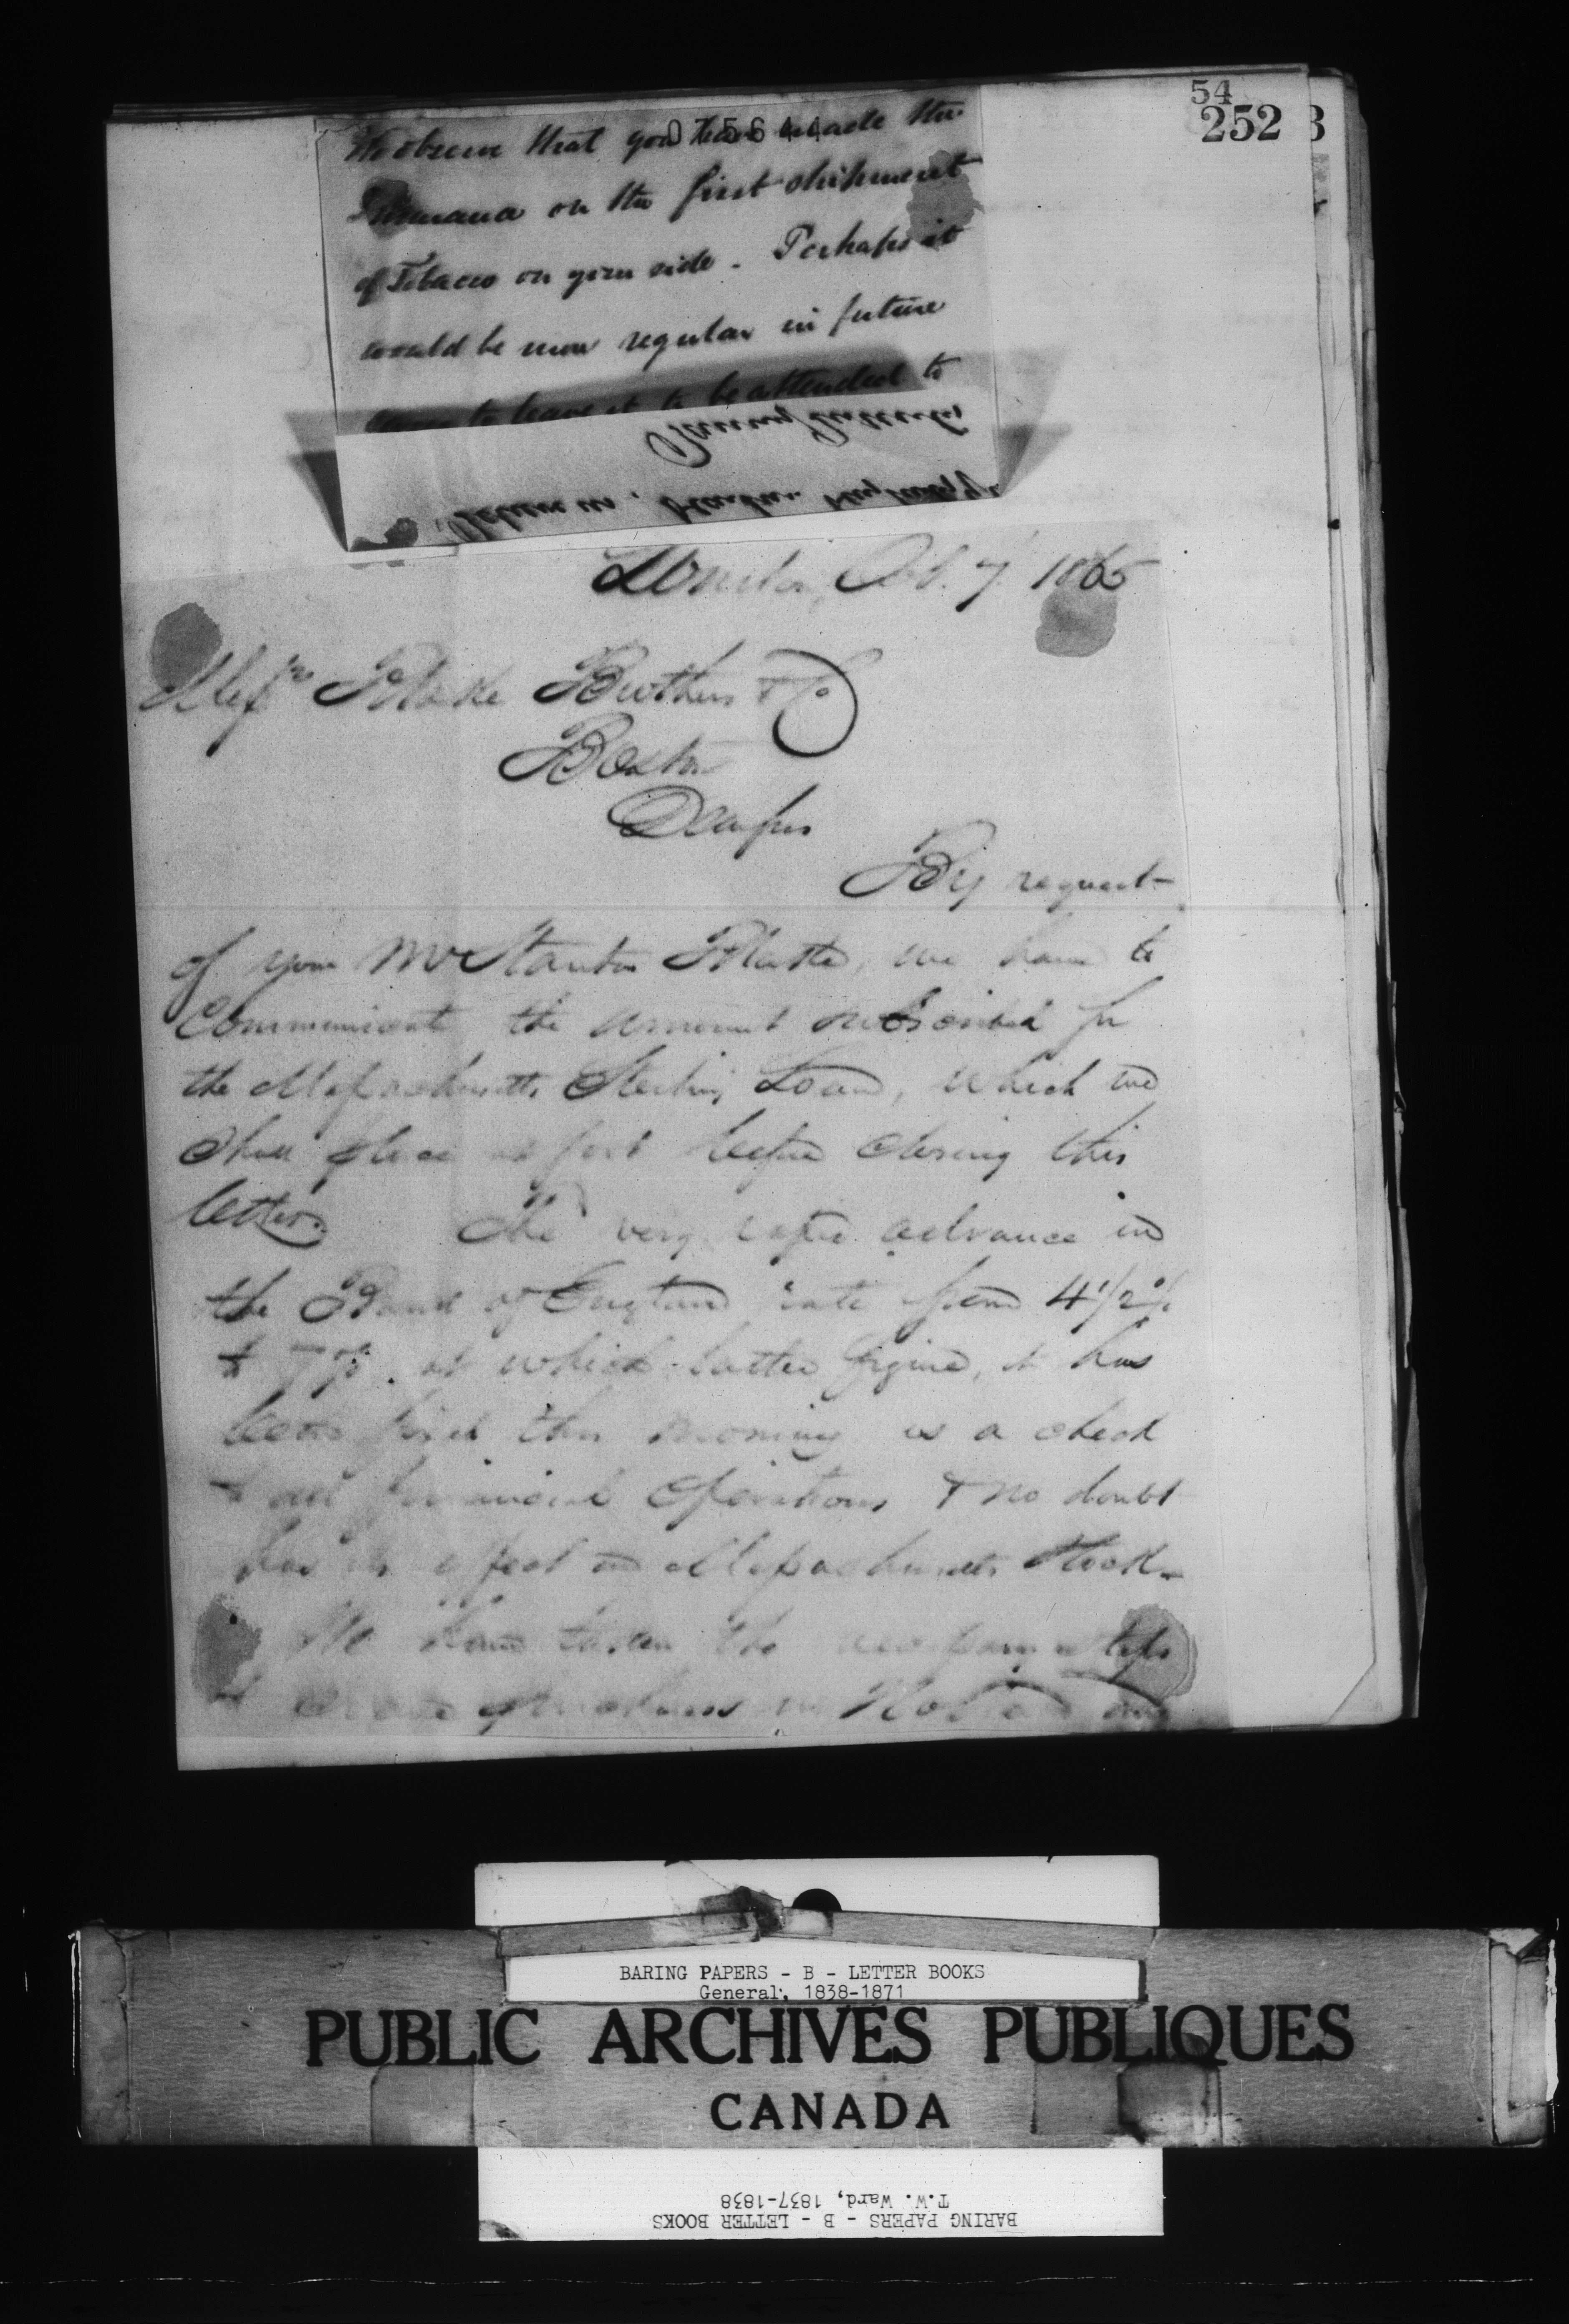 54
252 3
075644
We observe that you have made the
on the first shipment
of Tobacco on your side. Perhaps it
would be more regular in future
to leave it to be attended to
London, Oct. 7 1865
Messrs Blake Brothers & Co
Boston
Dear Sirs
By request
of your Mr Stanton Blake, we have to
communicate the amount subscribed for
the Massachusetts Sterling Loan, which we
shall place at foot before closing this
letter. The very rapid advance in
the Bank of England rate from 4 1/2 %
to 7 %, at which latter figure, it has
been fixed this morning is a check
to all financial operations & no doubt
has its effect on Massachusetts Stock.
We have taken the necessary steps
BARING PAPERS - B - LETTER BOOKS
General, 1838-1871
PUBLIC ARCHIVES PUBLIQUES
CANADA
T.W. Ward, 1837-1838
BARING PAPERS - B - LETTER BOOKS